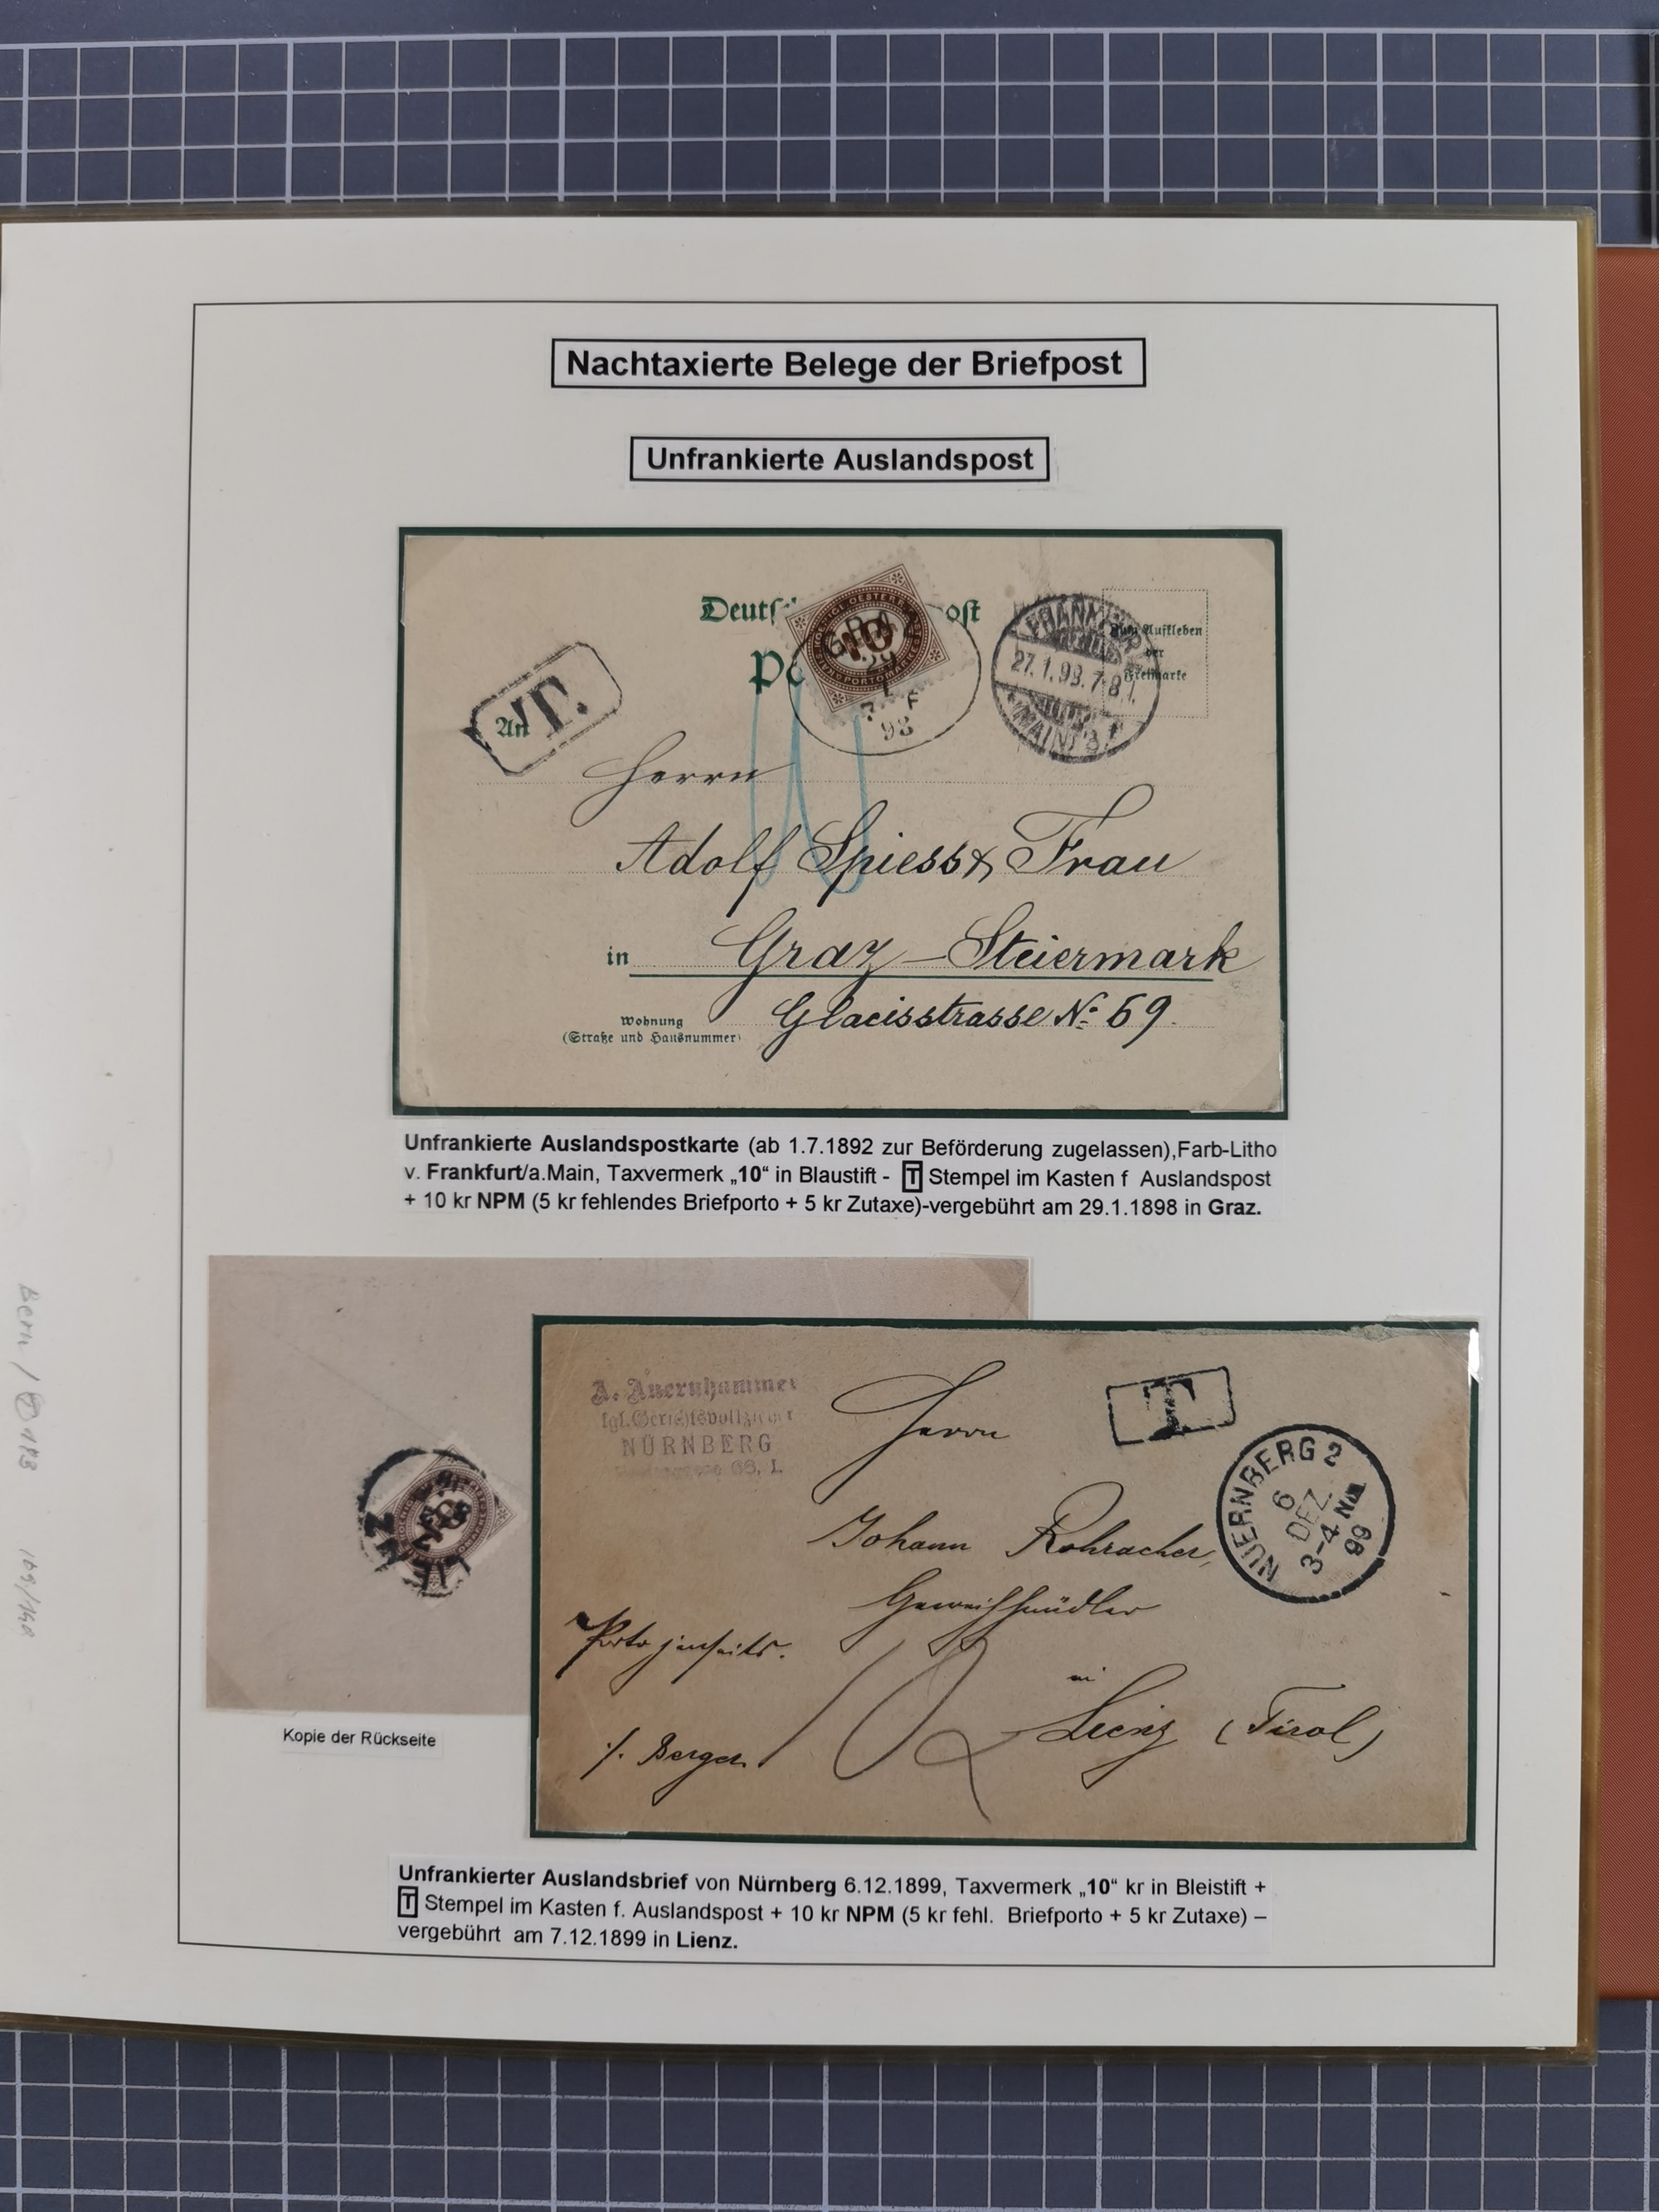 Nachtaxierte Belege der Briefpost
Unfrankierte Auslandspost
An T.
GRAZ
29
1
98
10
PORTOMARKE
FRANKFURT
27.1.98.7-8
(MAIN)
Zum Aufkleben
der
Freimarke
Herrn
Adolf Spiess & Frau
in Graz – Steiermark
Wohnung
(Straße und Hausnummer)
Glacisstrasse No 69.
Unfrankierte Auslandspostkarte (ab 1.7.1892 zur Beförderung zugelassen),Farb-Litho
v. Frankfurt/a.Main, Taxvermerk „10“ in Blaustift - T Stempel im Kasten f Auslandspost
+ 10 kr NPM (5 kr fehlendes Briefporto + 5 kr Zutaxe)-vergebührt am 29.1.1898 in Graz.
A. Auernhammer
kgl. Gerichtsvollzieher
NÜRNBERG
68, I.
T
NUERNBERG 2
6
DEZ.
3-4 Nm
99
Herrn
Johann Rohracher,
Geweihhändler
in
Lienz (Tirol)
Porto jenseits.
/. Berger
10
Kopie der Rückseite
Unfrankierter Auslandsbrief von Nürnberg 6.12.1899, Taxvermerk „10“ kr in Bleistift +
T Stempel im Kasten f. Auslandspost + 10 kr NPM (5 kr fehl. Briefporto + 5 kr Zutaxe) –
vergebührt am 7.12.1899 in Lienz.
Bern /